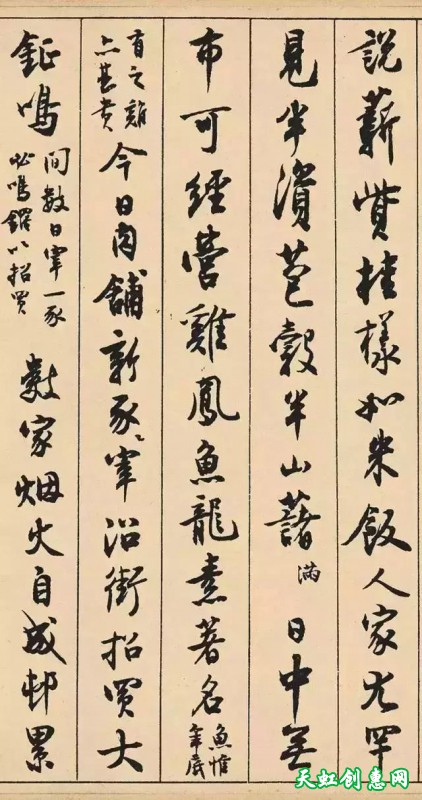 說薪貲桂樣如米飯人家尤罕
見半資苞穀半山藷滿日中無
布可經營雞鳳魚龍素著名魚惟年底
有之雞亦甚貴今日肉舖新豕宰沿街招買大
鉦鳴間數日宰一豕必鳴鑼以招買數家烟火自成邨累
天虹创惠网